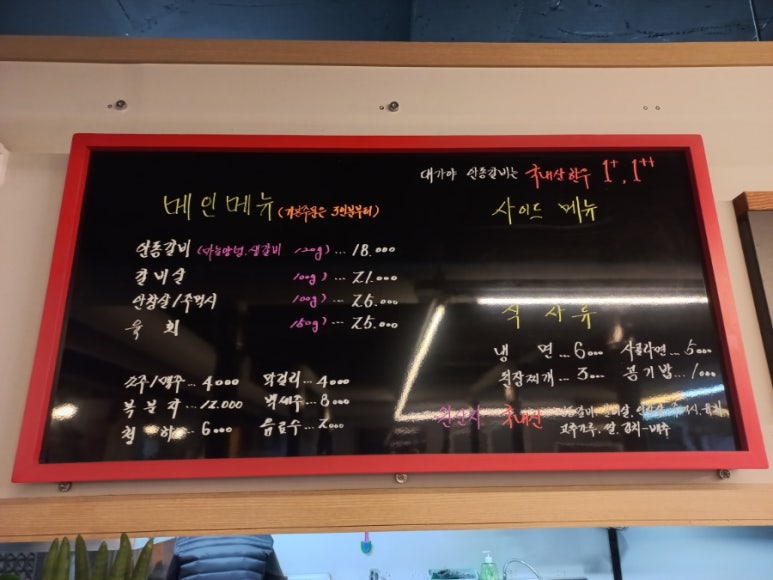 대가야 안동갈비는 국내산 한우 1+, 1++
메인메뉴 (기본주문은 3인분부터)
안동갈비 (마늘양념.생갈비 120g) ... 18.000
갈비살 100g) ... 21.000
안창살/주먹시 100g) ... 26.000
육회 150g) ... 25.000
소주/맥주 ... 4000 막걸리 ... 4000
복분자 ... 12.000 백세주 ... 8000
청하 ... 6000 음료수 ... 2000
사이드 메뉴
식사류
냉면 ... 6000 사골라면 ... 5000
된장찌개 ... 3000 공기밥 ... 1000
원산지 국내산
고추가루, 쌀, 김치-배추